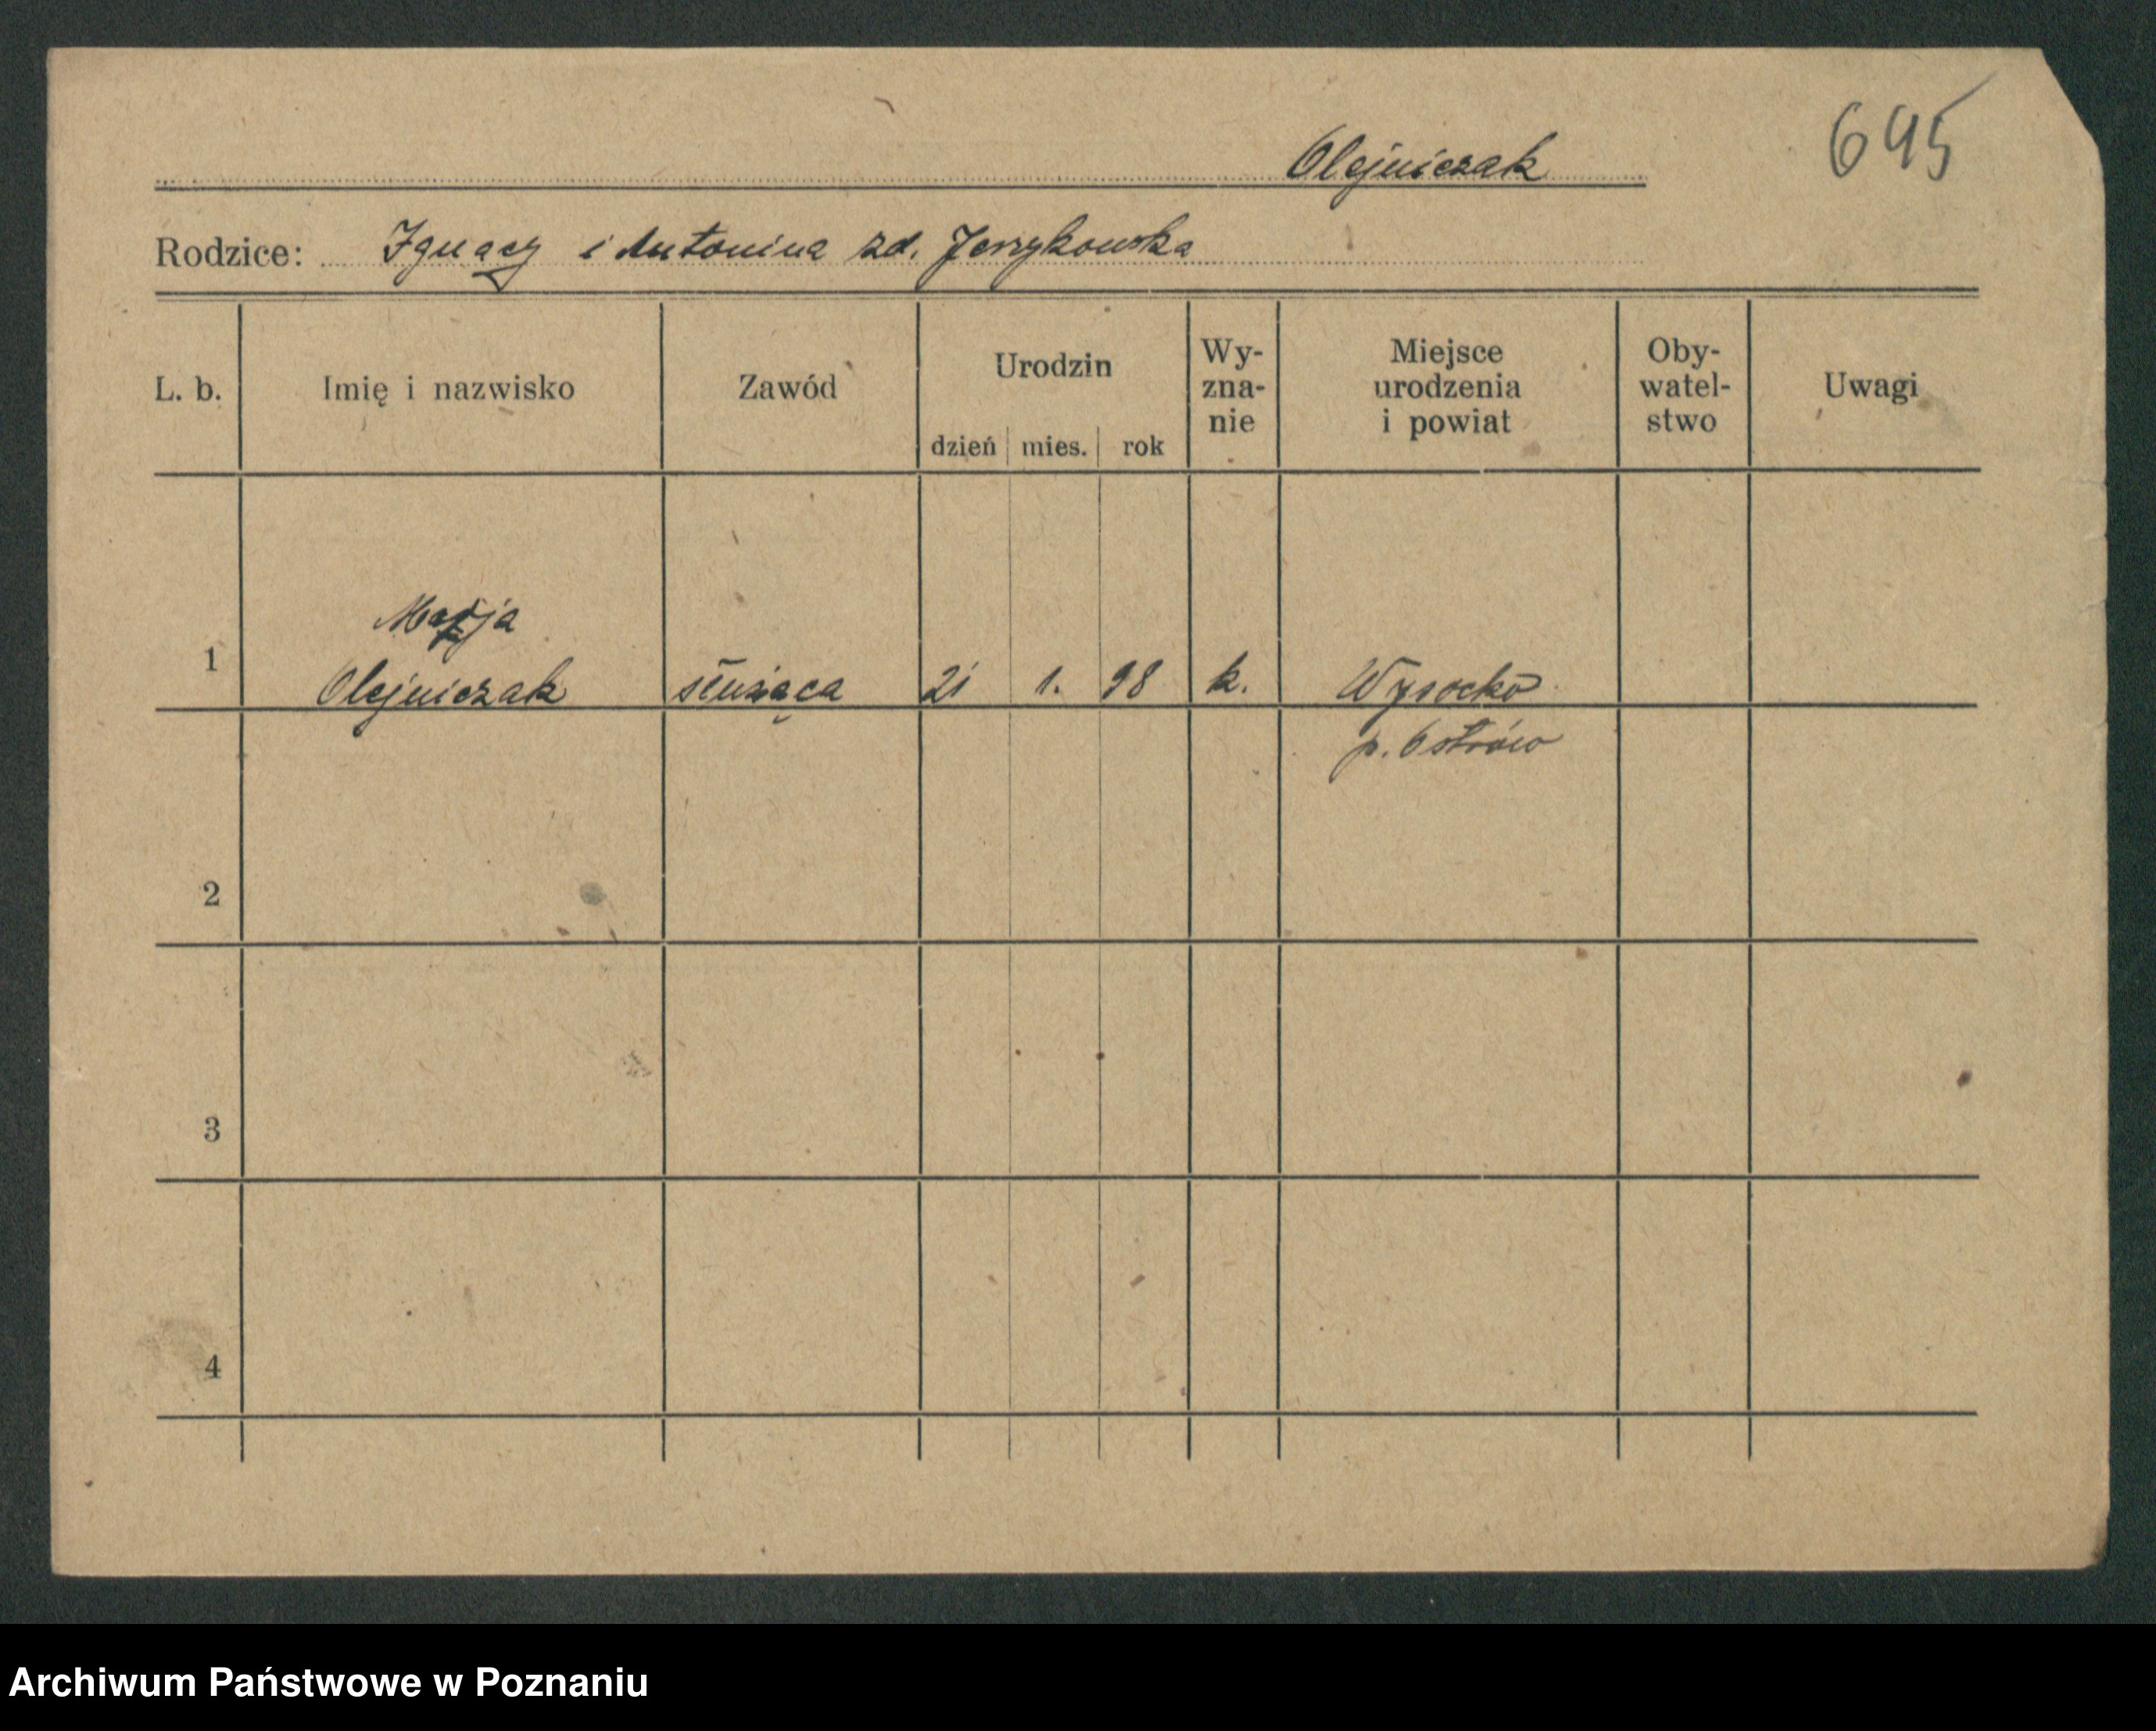 695
Olejniczak
Rodzice: Ignacy i Antonina zd. Jerzykowska
L. b. Imię i nazwisko Zawód Urodzin dzień mies. rok Wy-
zna-
nie Miejsce
urodzenia
i powiat Oby-
watel-
stwo Uwagi
Marja
1 Olejniczak służąca 21 1. 98 k. Wysocko
p. Ostrów
2
3
4
Archiwum Państwowe w Poznaniu